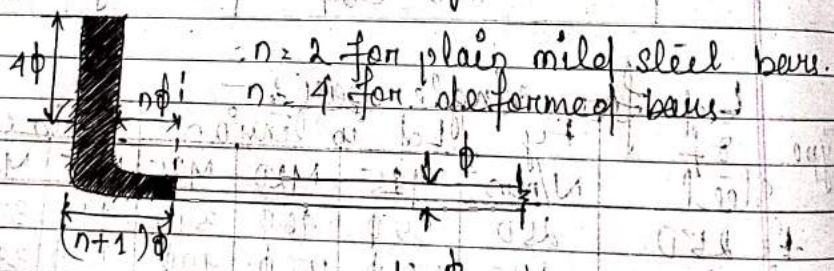 n = 2 for plain mild steel bars.
4ϕ
nϕ
n = 4 for deformed bars
ϕ
(n+1)ϕ